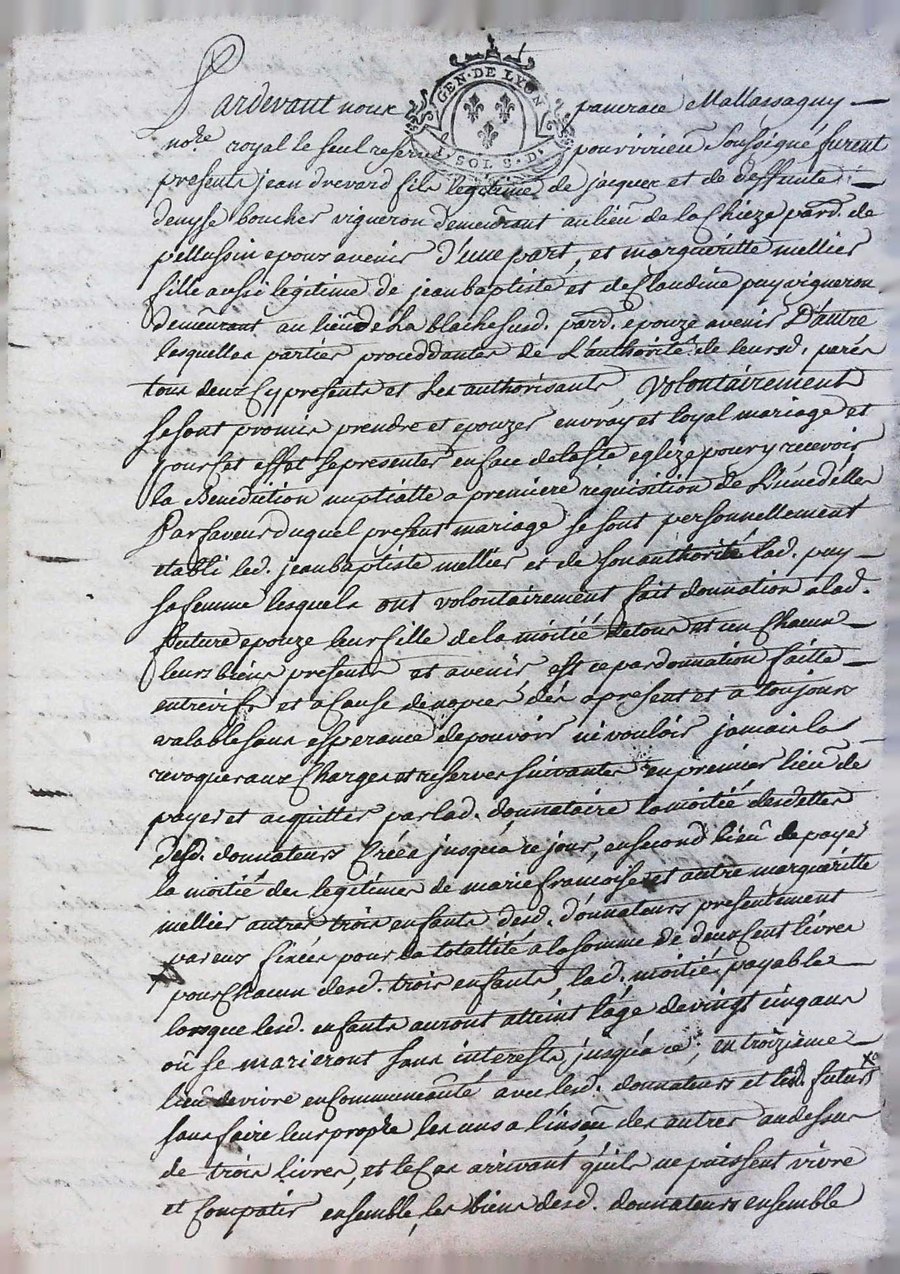 GEN. DE LYON
SOLS. D.
Pardevant nous pancrace Mallassaguy
notre royal le seul reservé pour virieu soussigné furent
presents jean drevard fils legitime de jacques et de deffunte
denyse boucher vigneron demeurant au lieu de la Chieze parr. de
pellussin epoux avenir d'une part, et margueritte mellier
fille aussi legitime de jean baptiste et de Claudine puy vigneron
demeurant au lieu de la blache susd. parr. epouze avenir D'autre
lesquelles parties proceddantes de L'authorité de leursd. peres
tous deux Cy presents et Les authorisants, Volontairement
se sont promis prendre et epouzer en vray et loyal mariage et
pour Cet effet se presenter en face de la ste eglize pour y recevoir
la Benediction nuptialle a premiere requisition de L'un d'elles
Par faveur duquel present mariage se sont personnellement
etabli led. jean baptiste mellier et de son authorité lad. puy
sa femme lesquels ont volontairement fait donnation a lad.
future epouze leur fille de la moitié de tous et un Chacun
leurs biens presents et avenir est ce par donnation faitte
entre vifs et a Cause de nopces dès a present et a toujours
valable sans esperance de pouvoir ni vouloir jamais la
revoquer aux Charges et reserves suivantes en premier lieu de
payer et acquitter par lad. donnataire la moitié des dettes
desd. donnateurs Créés jusqu'a ce jour, en second lieu de payer
la moitié des legitimes de marie francoise et autre marguéritte
mellier autres trois enfants desd. donnateurs presentement
par eux fixées pour la totallité a la somme de deux Cent livres
pour Chacun desd. trois enfants, lad. moitié payable
lorsque lesd. enfants auront atteint l'age de vingt cinq ans
où se marieront sans interests jusqu'a ce; en troizieme
lieu de vivre en Communeauté avec lesd. donnateurs et lesd. futurs
sans faire leur propre les uns a l'insçu des autres au dessus
de trois livres, et le Cas arrivant qu'ils ne puissent vivre
et Compatir ensemble, les biens desd. donnateurs ensemble